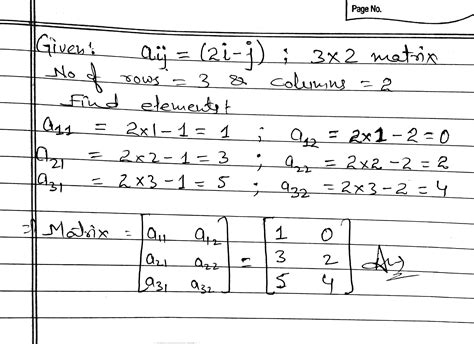 Page No.
Given: aij = (2i-j) ; 3×2 matrix
No of rows = 3 & columns = 2
Find elements
a11 = 2×1-1 = 1 ; a12 = 2×1-2=0
a21 = 2×2-1 = 3 ; a22 = 2×2-2=2
a31 = 2×3-1 = 5 ; a32 = 2×3-2=4
⇒ Matrix = [a11 a12 = [1 0
a21 a22 3 2
a31 a32] 5 4] Ans